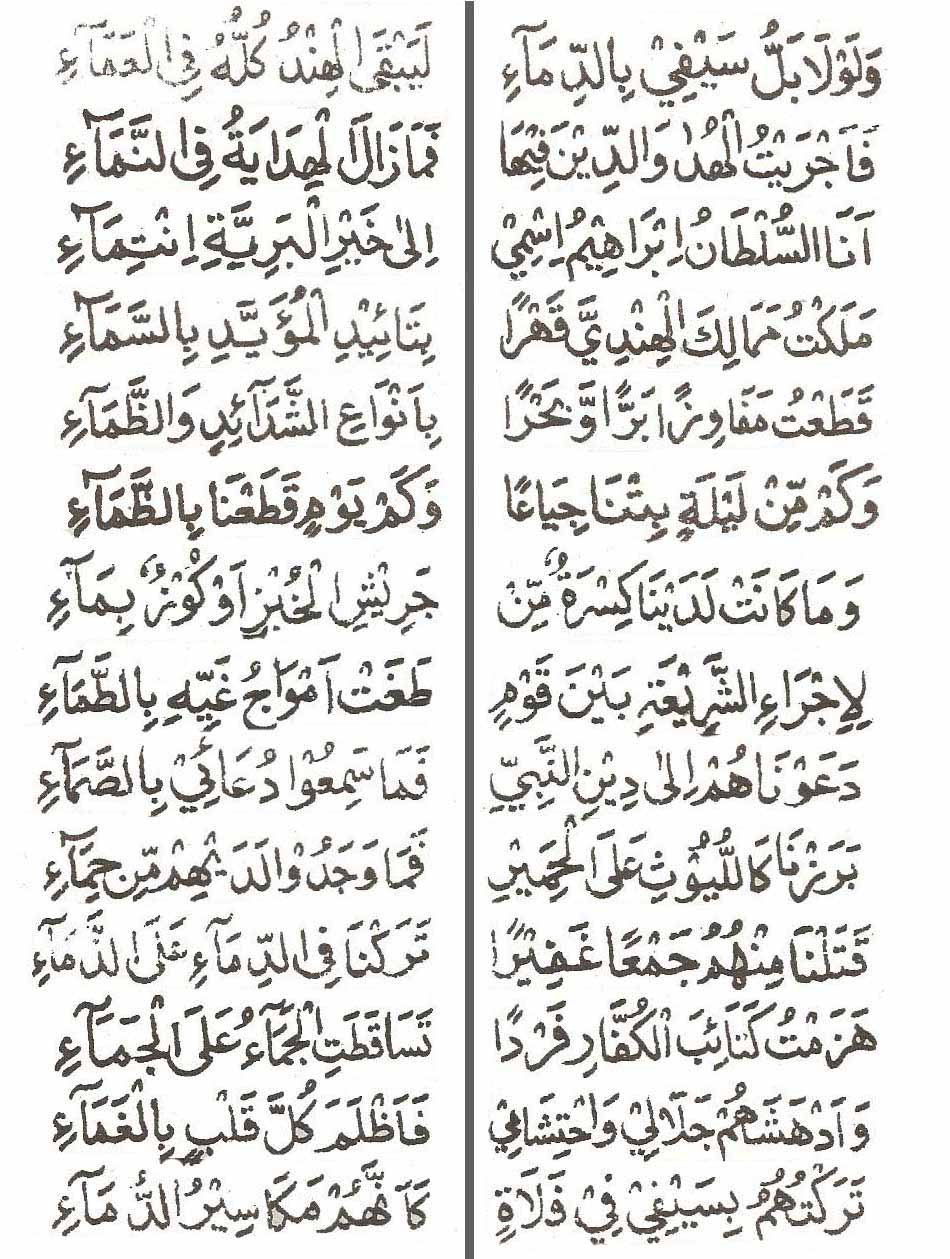 وَلَوْلَا بَلُّ سَيْفِيْ بِالدِّمَآءِ لَيَبْقَى الْهِنْدُ كُلُّهُ فِي الْعَمَآءِ
فَاَجْرَيْتُ الْهُدٰ وَالدِّيْنَ فِيْهَا فَمَا زَالَ الْهِدَايَةُ فِي النَّمَآءِ
اَنَا السُّلْطَانُ اِبْرَاهِيْمُ اِسْمِيْ اِلٰى خَيْرِ الْبَرِيَّةِ اِنْتِمَآءِ
مَلَكْتُ مَمَالِكَ الْهِنْدِيَّ قَهْرًا بِتَائِيْدِ الْمُؤَيَّدِ بِالسَّمَآءِ
قَطَعْتُ مَفَاوِزًا بَرًّا وَّبَحْرًا بِاَنْوَاعِ الشَّدَآئِدِ وَالظَّمَآءِ
وَكَمْ مِّنْ لَيْلَةٍ بِتْنَا جِيَاعًا وَكَمْ يَوْمٍ قَطَعْنَا بِالظَّمَآءِ
وَمَا كَانَتْ لَدَيْنَا كِسْرَةٌ مِّنْ جَرِيْشِ الْخُبْزِ اَوْ كُوْزٌ بِمَآءِ
لِاِجْرَاءِ الشَّرِيْعَةِ بَيْنَ قَوْمٍ طَغَتْ اَمْوَاجُ غَيِّهِ بِالطَّمَآءِ
دَعَوْنَاهُمْ اِلٰى دِيْنِ النَّبِيِّ فَمَا سَمِعُوْا دُعَائِيْ بِالصَّمَآءِ
بَرَزْنَا كَاللُّيُوْثِ عَلَى الْحَمِيْرِ فَمَا وَجَدُوْا لَدَيْهِمْ مِّنْ حِمَآءِ
قَتَلْنَا مِنْهُمُ جَمْعًا غَفِيْرًا تَرَكْنَا فِي الدِّمَآءِ عَلَى الدَّمَآءِ
هَزَمْتُ كَتَائِبَ الْكُفَّارِ فَرْدًا تَسَاقَطَتِ الْجَمَّآءُ عَلَى الْجَمَآءِ
وَاَدْهَشَاهُمْ جَلَالِيْ وَاحْتِشَامِيْ فَاَظْلَمَ كُلَّ قَلْبٍ بِالْغَمَآءِ
تَرَكْتُهُمُ بِسَيْفِيْ فِيْ فَلَاةٍ كَاَنَّهُمْ مَكَاسِيْرُ الدُّمَآءِ